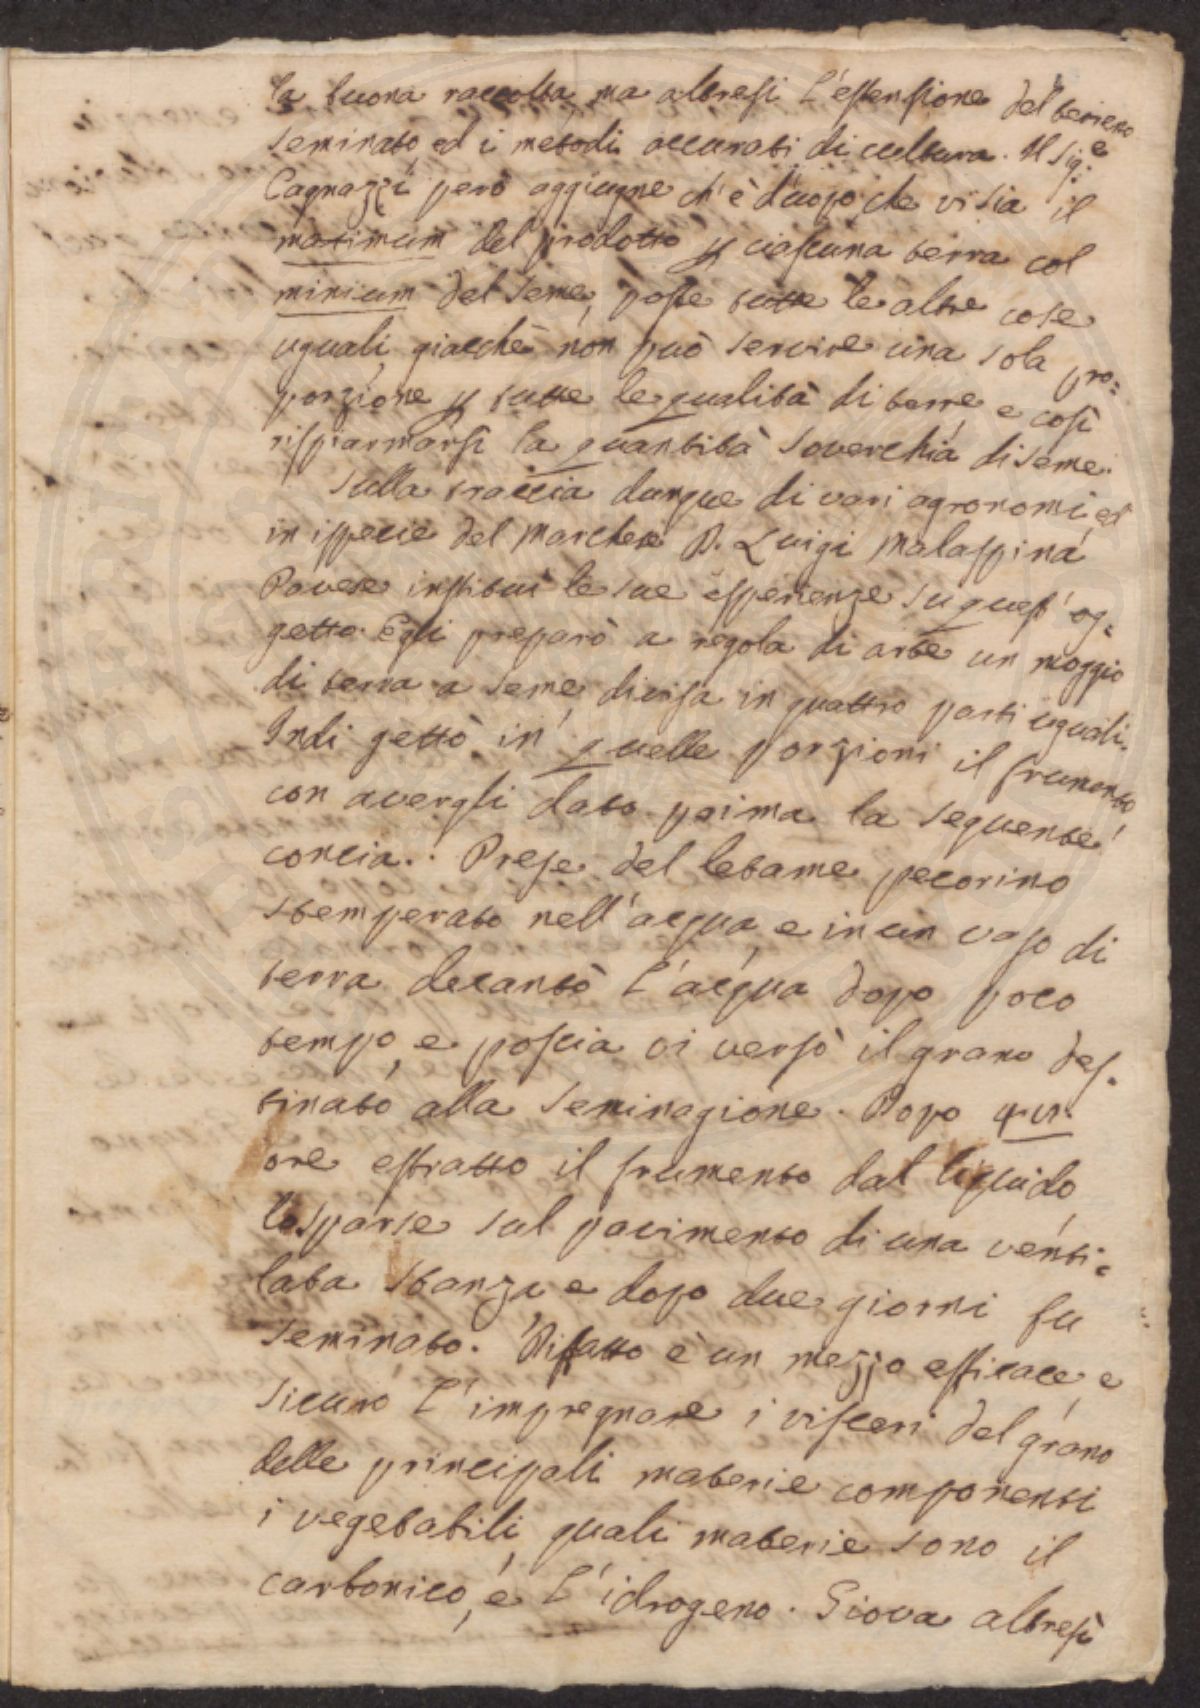 la buona raccolta ma altresì l'estensione del terreno
seminato, ed i metodi accurati di cultura. Il Sig.e
Cagnazzi però aggiugne ch'è d'uopo che vi sia il
maximum del prodotto p ciascuna terra col
minium del seme, poste tutte le altre cose
uguali, giacchè non può servire una sola pro=
porzione p tutte le qualità di terre e così
risparmarsi la quantità soverchia di seme.
Sulla traccia dunque di vari agronomi, ed
in ispecie del Marchese D. Luigi Malaspina
Pavese instituì le sue esperienze su quest'og=
getto. Egli preparò a regola di arte un moggio
di terra a seme, divisa in quattro parti uguali.
Indi gettò in quelle porzioni il frumento
con avergli dato prima la seguente
concia. Prese del letame pecorino
stemperato nell'acqua, e in un vaso di
terra decantò l'acqua dopo poco
tempo, e poscia vi versò il grano des=
tinato alla seminagione. Dopo
ore estratto il frumento dal liquido
lo sparse sul pavimento di una venti=
lata stanza, e dopo due giorni fu
seminato. Diffatto è un mezzo efficace, e
sicuro l'impregnare i visceri del grano
delle principali materie componenti
i vegetabili, quali materie sono il
carbonico, e l'idrogeno. Giova altresì